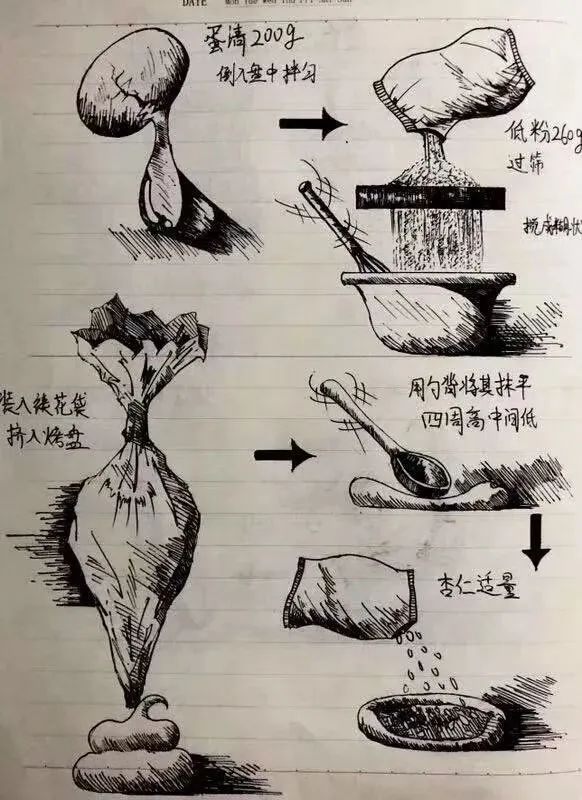 DATE Mon Tue Wed Thu Fri Sat Sun
蛋清200g
倒入盘中拌匀
低粉260g
过筛
搅成糊状
装入裱花袋
挤入烤盘
用勺背将其抹平
四周高中间低
杏仁适量